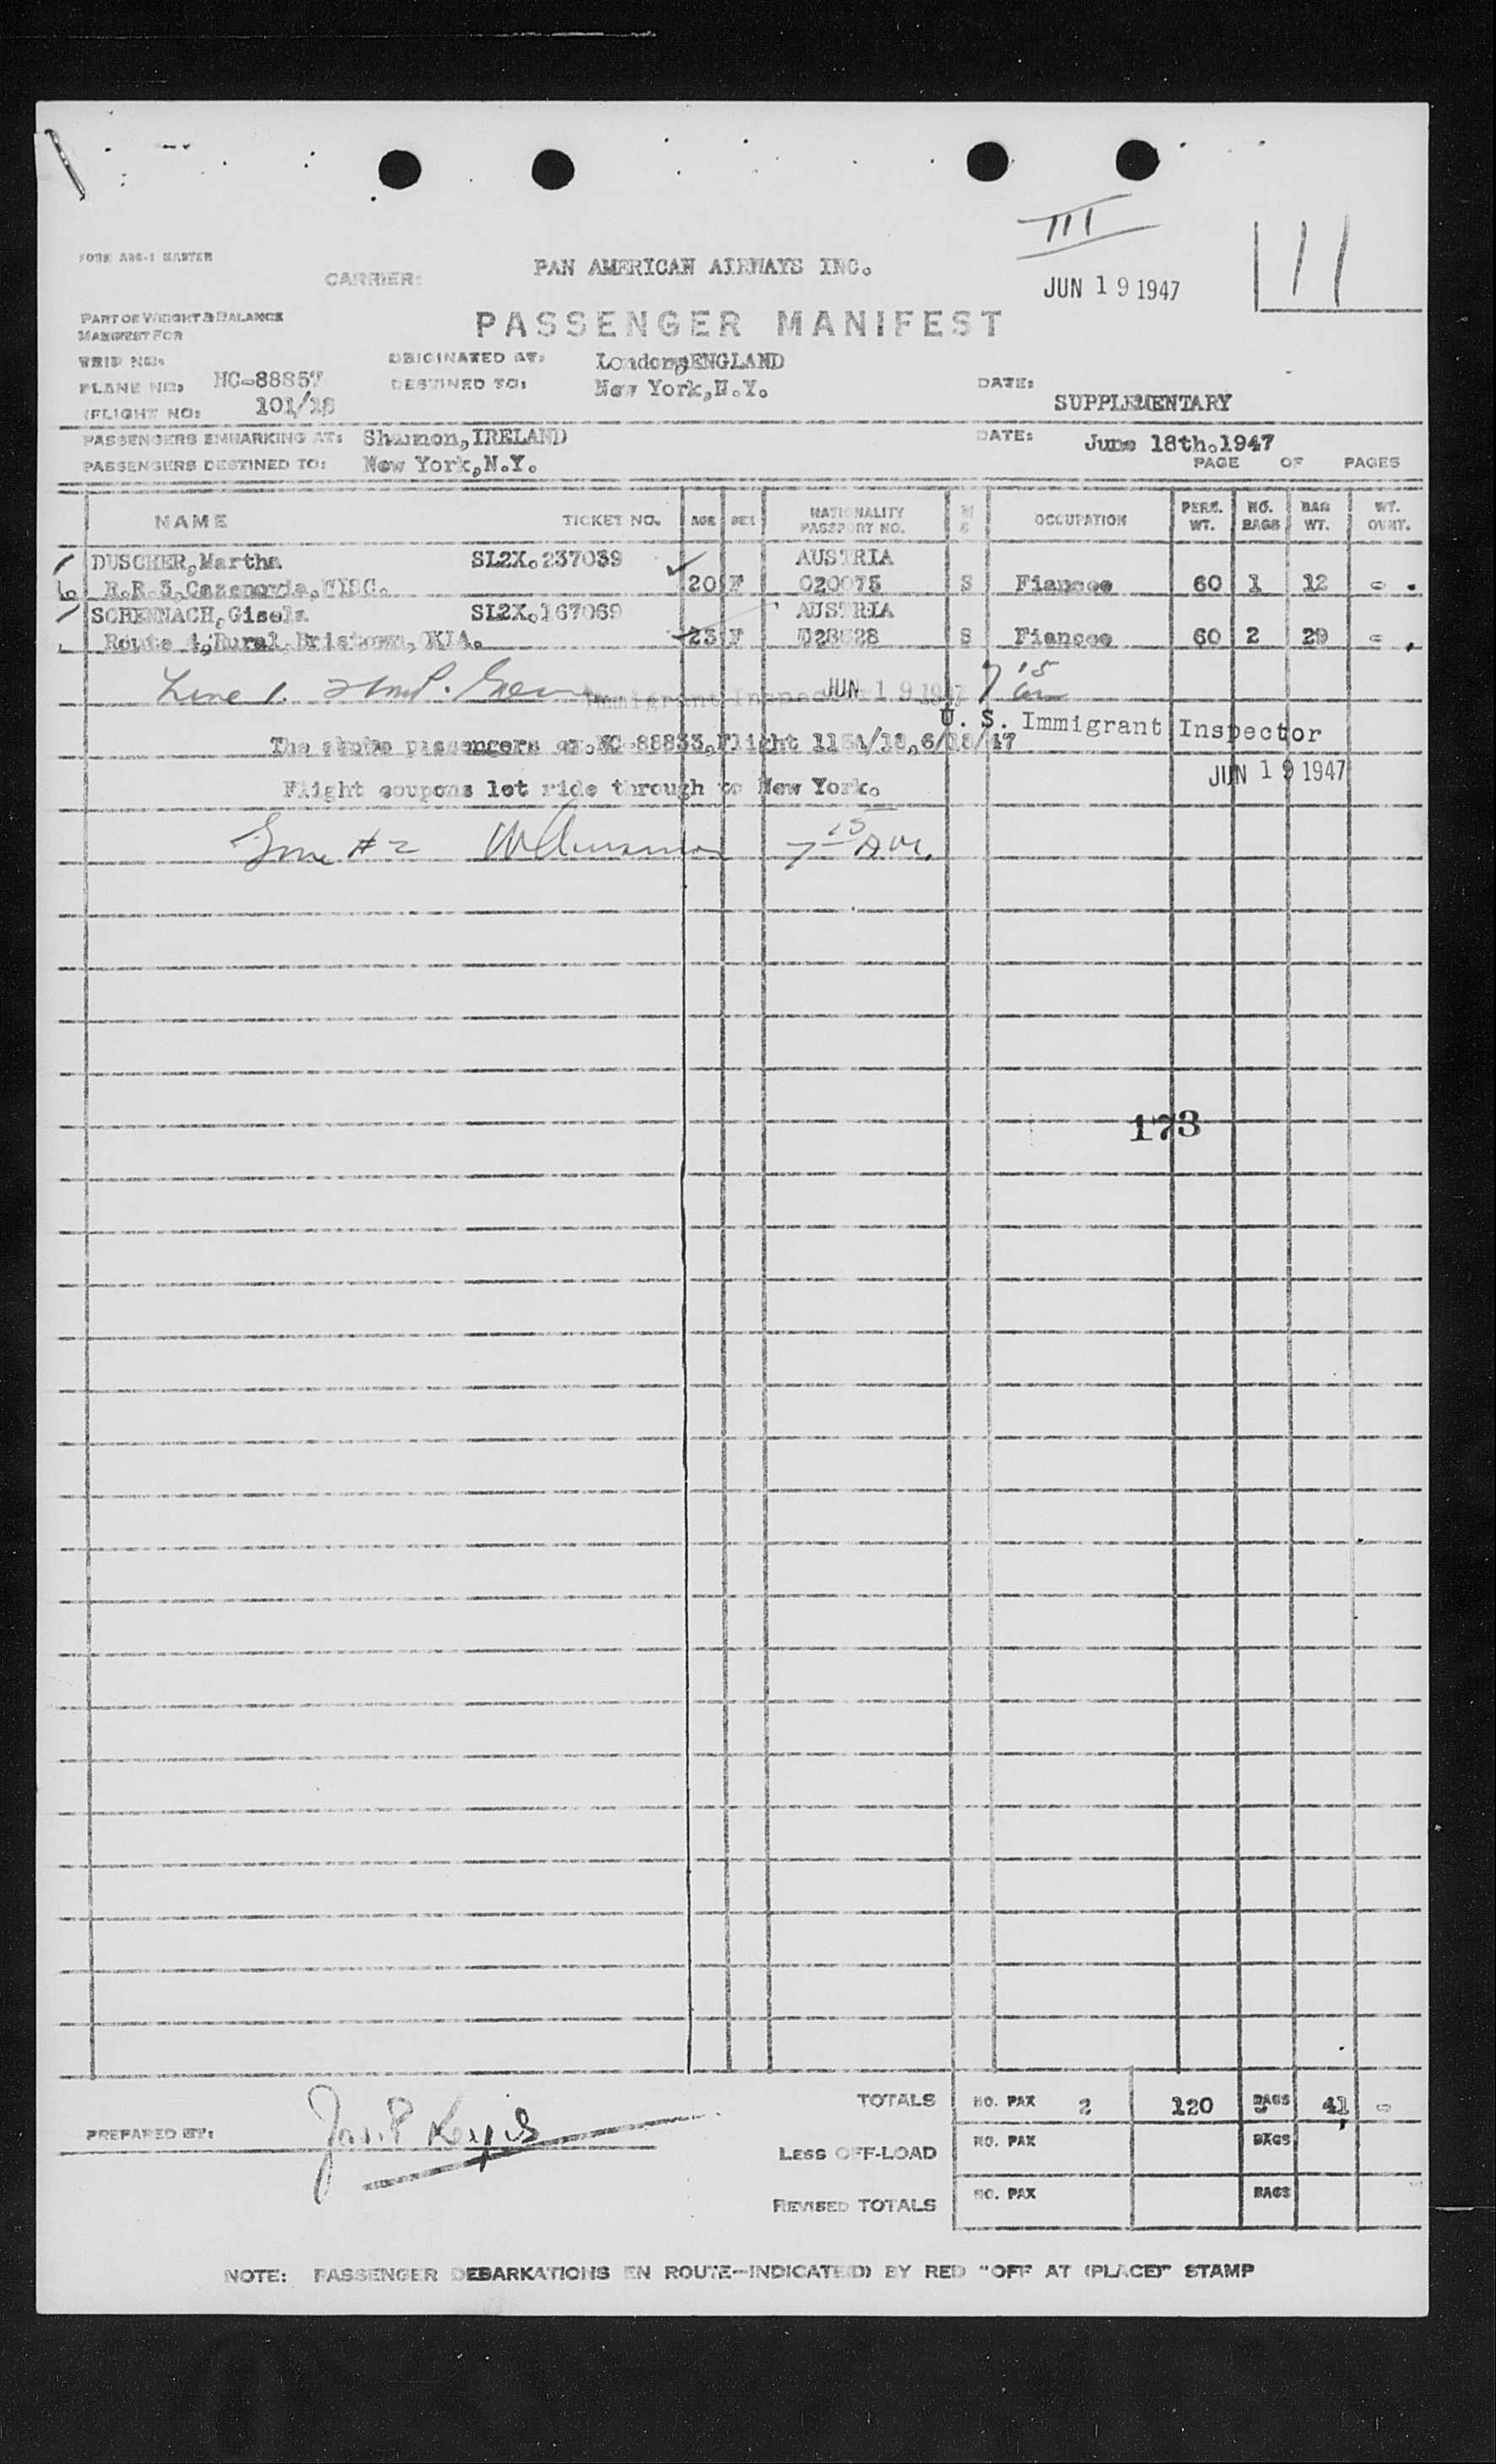 III
111
FORM ABG-1 MASTER
CARRIER: PAN AMERICAN AIRWAYS INC.
JUN 19 1947
PART OF WEIGHT & BALANCE
MANIFEST FOR
PASSENGER MANIFEST
TRIP NO:
ORIGINATED AT: London, ENGLAND
PLANE NO: NC-88857
DESTINED TO: New York, N.Y.
DATE:
(FLIGHT NO: 101/18
SUPPLEMENTARY
PASSENGERS EMBARKING AT: Shannon, IRELAND
DATE: June 18th.1947
PASSENGERS DESTINED TO: New York, N.Y.
PAGE OF PAGES
NAME TICKET NO. AGE SEX NATIONALITY PASSPORT NO. M S OCCUPATION PERS. WT. NO. BAGS BAG WT. WT. OVWT.
DUSCHER, Martha SL2X.237039 AUSTRIA
R.R.3, Cazenovia, WISC. 20 F 020075 S Fiancee 60 1 12 -
SCHENNACH, Gisela SL2X.167069 AUSTRIA
Route 4, Rural, Bristown, OKLA. 23 F S Fiancee 60 2 29 -
Line 1.
Immigrant Inspector JUN 19 1947 7 15
U. S. Immigrant Inspector
The above passengers NC-88833, Flight 6/18/47
JUN 19 1947
Flight coupons let ride through to New York.
Line #2 7 15 AM.
173
TOTALS NO. PAX 2 120 BAGS 41 -
PREPARED BY:
LESS OFF-LOAD NO. PAX BAGS
REVISED TOTALS NO. PAX BAGS
NOTE: PASSENGER DEBARKATIONS EN ROUTE-INDICATE(D) BY RED "OFF AT (PLACE)" STAMP